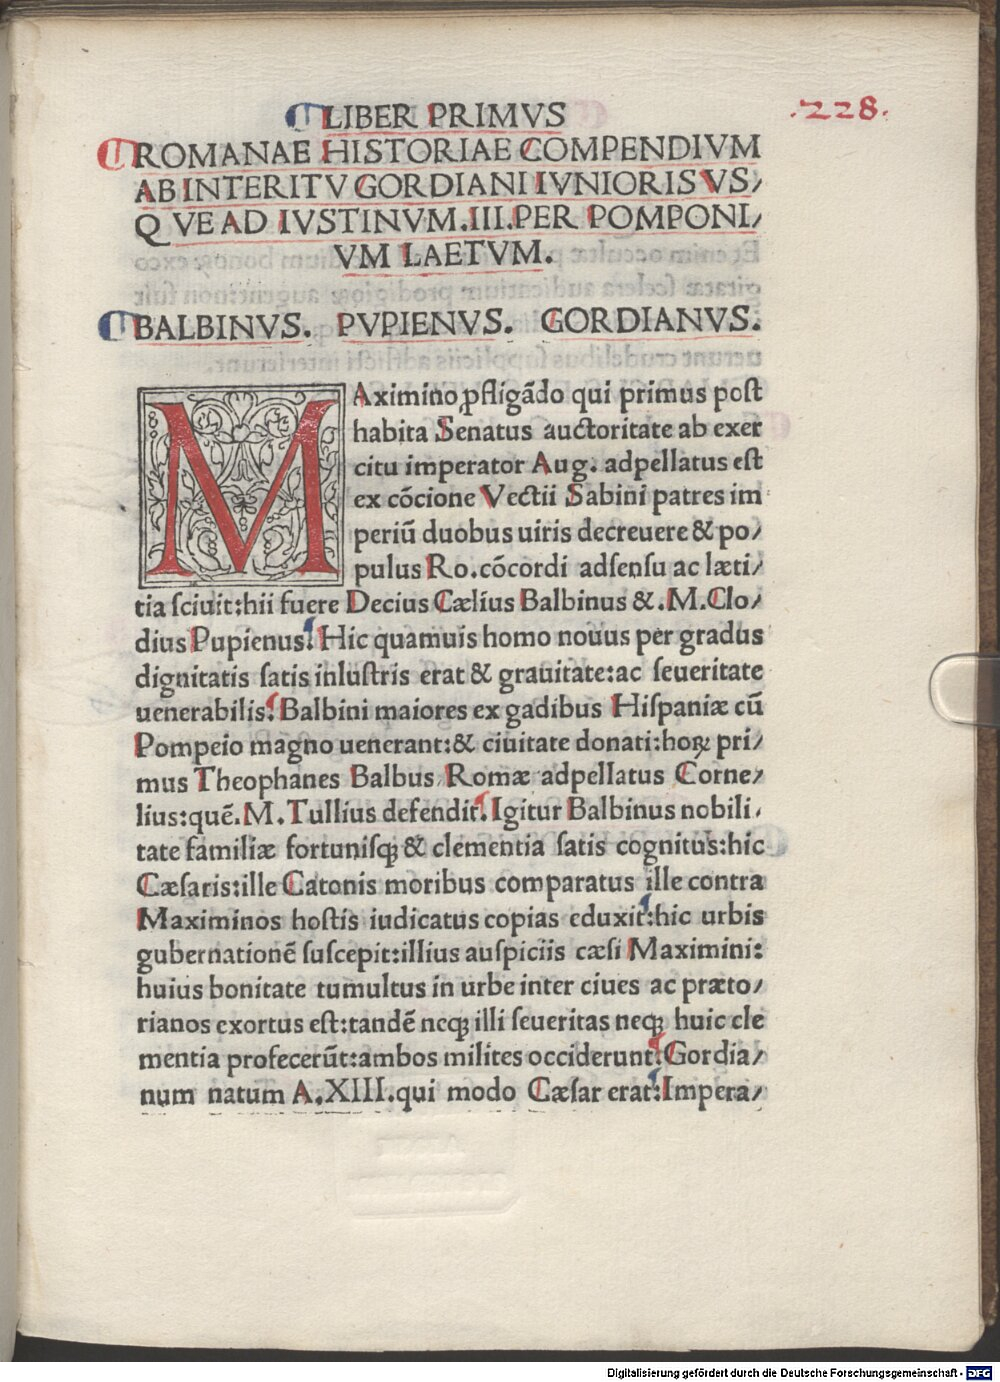 LIBER PRIMVS
.228.
ROMANAE HISTORIAE COMPENDIVM
AB INTERITV GORDIANI IVNIORIS VS/
QVE AD IVSTINVM .III. PER POMPONI/
VM LAETVM.
BALBINVS. PVPIENVS. GORDIANVS.
MAximino ꝓfligãdo qui primus post
habita Senatus auctoritate ab exer
citu imperator Aug. adpellatus est
ex cõcione Vectii Sabini patres im
periũ duobus uiris decreuere & po/
pulus Ro. cõcordi adsensu ac læti/
tia sciuit: hii fuere Decius Cælius Balbinus &. M. Clo/
dius Pupienus. Hic quamuis homo nouus per gradus
dignitatis satis inlustris erat & grauitate: ac seueritate
uenerabilis. Balbini maiores ex gadibus Hispaniæ cũ
Pompeio magno uenerant: & ciuitate donati: hoꝝ pri/
mus Theophanes Balbus Romæ adpellatus Corne/
lius: quẽ. M. Tullius defendit. Igitur Balbinus nobili/
tate familiæ fortunisqꝫ & clementia satis cognitus: hic
Cæsaris: ille Catonis moribus comparatus ille contra
Maximinos hostis iudicatus copias eduxit: hic urbis
gubernationẽ suscepit: illius auspiciis cæsi Maximini:
huius bonitate tumultus in urbe inter ciues ac præto/
rianos exortus est: tandẽ neqꝫ illi seueritas neqꝫ huic cle
mentia profecerũt: ambos milites occiderunt. Gordia/
num natum A. XIII. qui modo Cæsar erat. Impera/
Digitalisierung gefördert durch die Deutsche Forschungsgemeinschaft - DFG